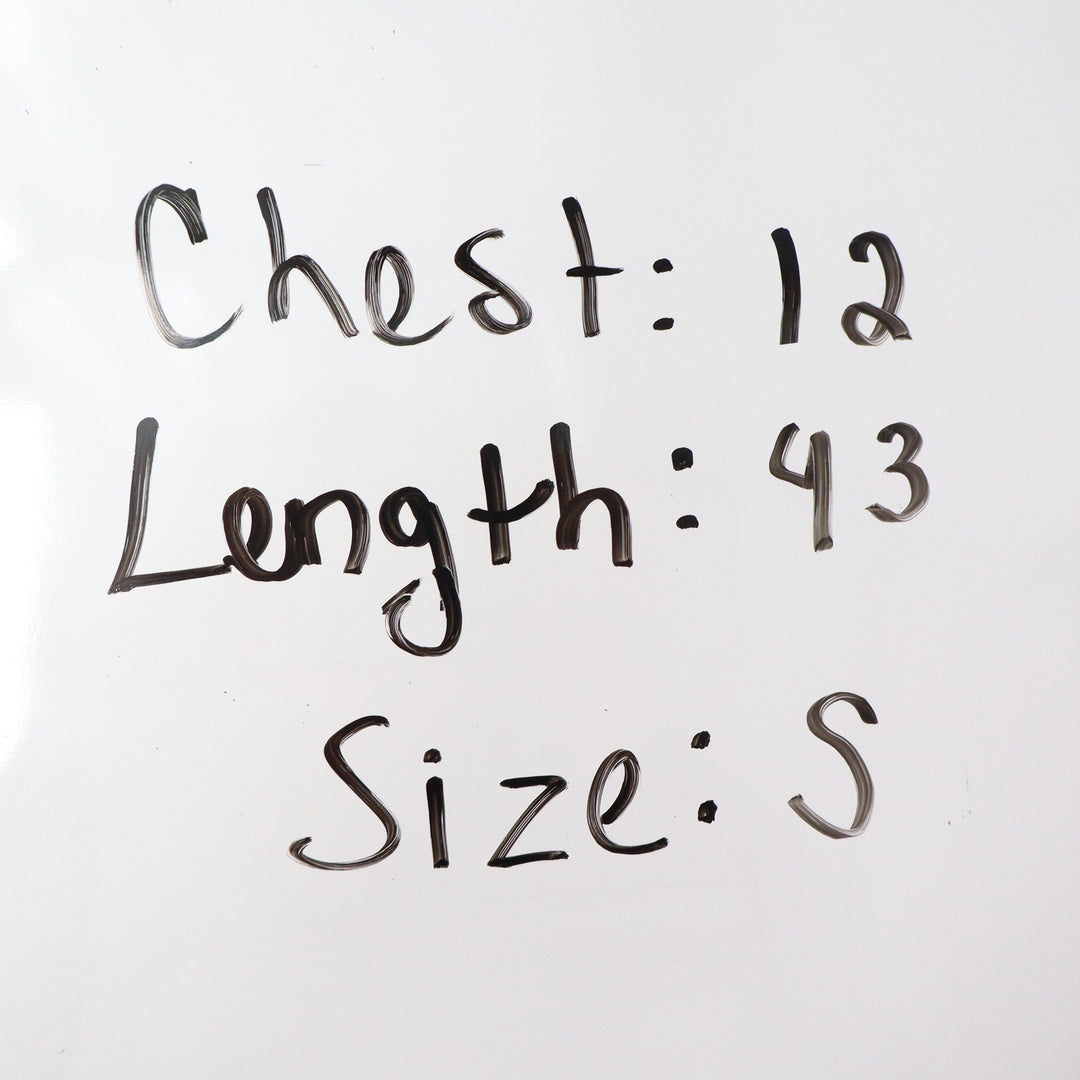 Chest: 12
Length: 43
Size: S